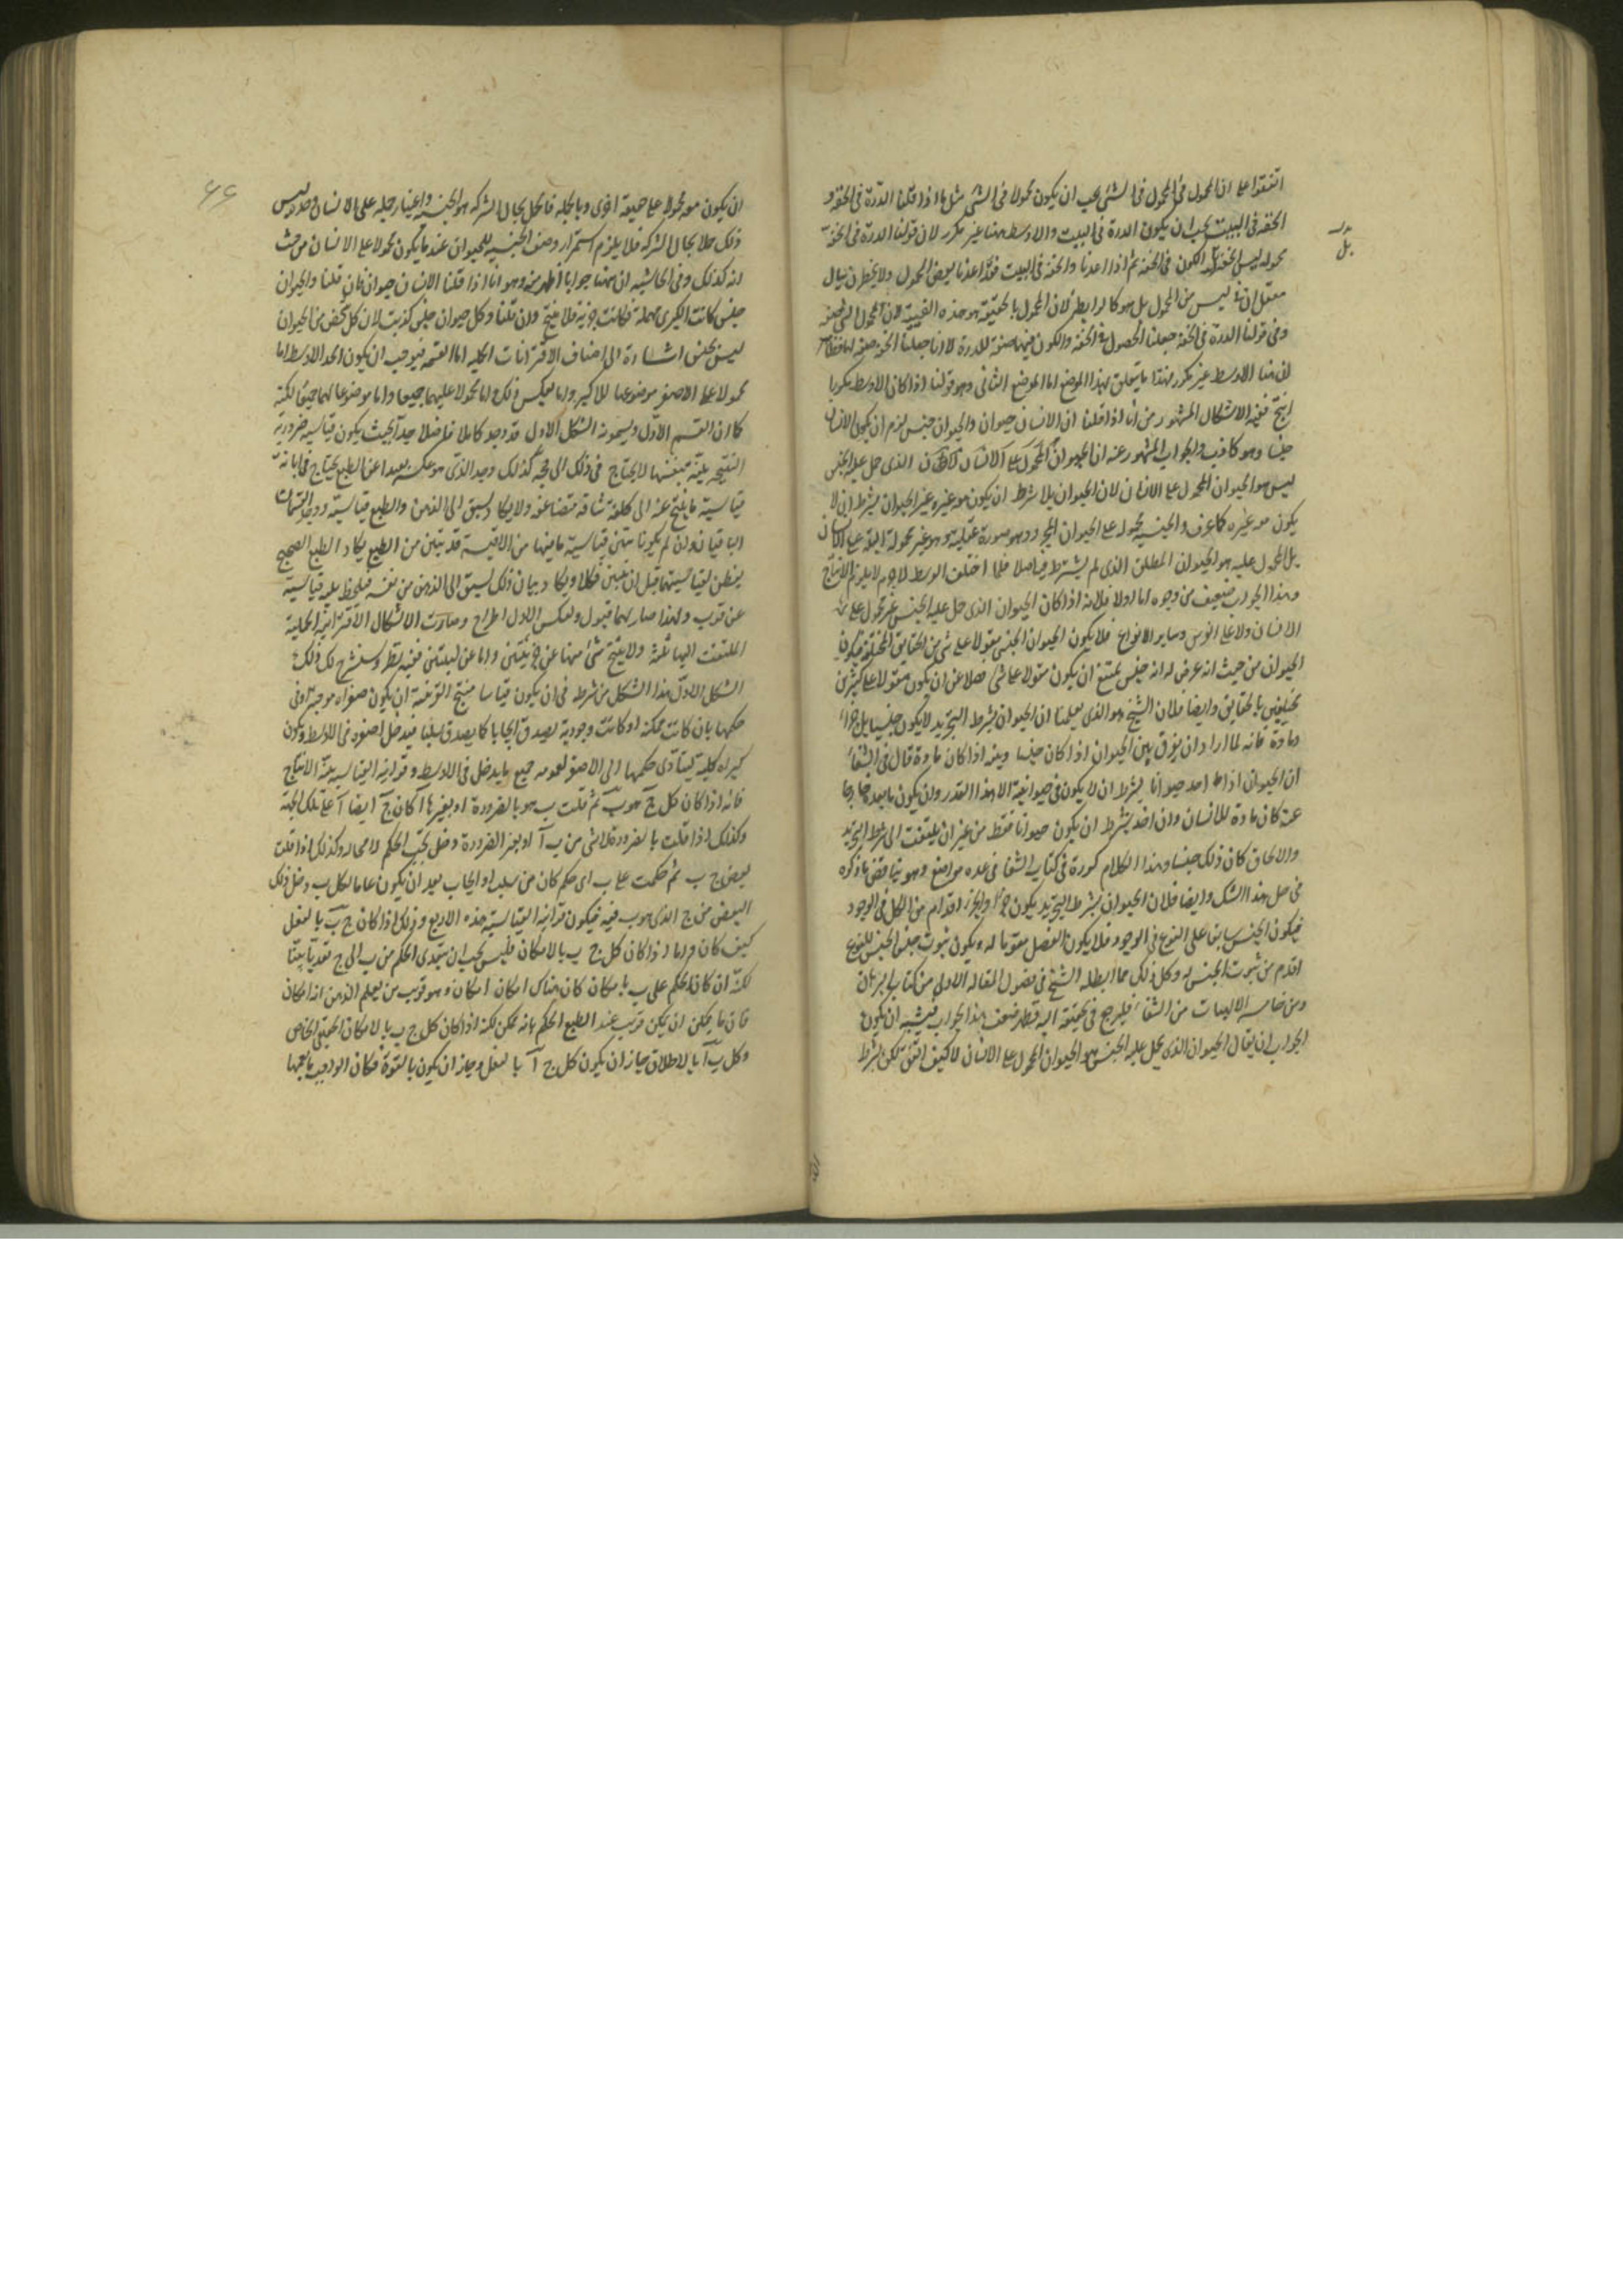 اتفقوا على ان المحمول في المحمول في الشئ يجب ان يكون محمولا في الشئ مثل ما اذا قلنا الدرة في الحقة و
الحقة في البيت يجب ان يكون الدرة في البيت والاوسط ههنا غير مكرر لان قولنا الدرة في الحقة
محموله ليس الحقة بل الكون في الحقة ثم اذا اعدنا والحقة في البيت فقد اعدنا بعض المحمول ولا يخطرن ببال
بل
ليس من المحمول بل هو كالرابطة لان المحمول بالحقيقة هو هذه
وفي قولنا الدرة في الحقة جعلنا الحصول في الحقة والكون فيها صفة للدرة لا انا جعلنا الحقة صفة لها فقط
الاوسط غير مكرر فهذا ما يتعلق بهذا الموضع اما الموضع الثاني وهو قولنا اذا كان الاوسط مكررا
انتج ففيه الاشكال المشهور من انا اذا قلنا ان الانسان حيوان والحيوان جنس لزم ان يكون الانسان
جنسا وهو كاذب والجواب المشهور عنه ان الحيوان المحمول على الانسان الذي حمل عليه الجنس
ليس هو الحيوان المحمول على الانسان لان الحيوان بلا شرط ان يكون معه غيره غير الحيوان بشرط ان لا
يكون معه غيره كما عرف والجنسية محمولة على الحيوان المجرد وهو صورة عقلية وهو غير محمولة البتة على الانسان
بل المحمول عليه هو الحيوان المطلق الذي لم يشترط فيه اصلا فلما اختلف الوسط لاجرم لا يلزم الانتاج
وهذا الجواب ضعيف من وجوه اما اولا فلانه اذا كان الحيوان الذي حمل عليه الجنس غير محمول على
الانسان ولا على الفرس وساير الانواع فلا يكون الحيوان الجنسي مقولا على شئ من الحقايق المختلفة فيكون
الحيوان من حيث انه عرض له انه جنس يمتنع ان يكون مقولا على شئ اصلا عن ان يكون مقولا على كثيرين
مختلفين بالحقايق وايضا فلان الشيخ هو الذي يعلمنا ان الحيوان بشرط التجريد لا يكون جنسا بل جزءا
ومادة فانه لما اراد ان يفرق بين الحيوان اذا كان جنسا وبينه اذا كان مادة قال في الشفاء
ان الحيوان اذا اخذ حيوانا بشرط ان لا يكون في حيوانيته الا هذا القدر وان يكون ما بعده خارجا
عنه كان مادة للانسان وان اخذ بشرط ان يكون حيوانا فقط من غير ان يلتفت الى شرط التجريد
والالحاق كان ذلك جنسا وهذا الكلام كرره في كتاب الشفا في عدة مواضع وهو يناقض ما ذكره
في حل هذا الشك وايضا فلان الحيوان بشرط التجريد يكون جزءا والجزء اقدم من الكل في الوجود
فيكون الجنس سابقا على النوع في الوجود فلا يكون الفصل مقوما له ويكون ثبوت جنس الجنس للنوع
اقدم من ثبوت الجنس له وكل ذلك مما ابطله الشيخ في فصول المقالة الاولى من كتاب البرهان
ومن خامسة الالهيات من الشفاء فليرجع في تحقيقه اليه فظهر ضعف هذا الجواب فيشبه ان يكون
الجواب ان يقال الحيوان الذي يحمل عليه الجنس هو الحيوان المحمول على الانسان لا كيف اتفق لكن بشرط
۶۶
ان يكون معه محمولا على طبيعة اخرى وبالجملة فالحمل بحال الشركة هو الجنسية واعتبار حمله على الانسان وحده ليس
ذلك حملا بحال الشركة فلا يلزم استمرار وصف الجنسية للحيوان عندما يكون محمولا على الانسان من حيث
انه كذلك وفي الحاشية ان ههنا جوابا اظهر منه وهو انا اذا قلنا الانسان حيوان فان قلنا والحيوان
جنس كانت الكبرى مهملة فكانت جزئية فلا ينتج وان قلنا وكل حيوان جنس كذبت لان كل شخص من الحيوان
ليس بجنس اشارة الى اصناف الاقترانات الحملية اما القسمة فتوجب ان يكون الحد الاوسط اما
محمولا على الاصغر موضوعا للاكبر واما بعكس ذلك اما محمولا عليهما جميعا واما موضوعا لهما جميعا لكنه
كما ان القسم الاول ويسمونه الشكل الاول قد وجد كاملا فاضلا جدا بحيث يكون قياسيته ضرورية
النتيجة بينة بنفسها لا يحتاج في ذلك الى حجة كذلك وجد الذي هو عكسه بعيدا عن الطبع يحتاج في ابانة
قياسية ما ينتج عنه الى كلفة شاقة متضاعفة ولا يكاد يسبق الى الذهن والطبع قياسيته ووجد القسمان
الباقيان وان لم يكونا بينى قياسية ما فيهما من الاقيسة قريبين من الطبع يكاد الطبع الصحيح
يفطن لقياسيتهما قبل ان يبين ذلك او يكاد بيان ذلك يسبق الى الذهن من نفسه فيلحظ لمية قياسيته
عن قرب ولهذا صار لهما قبول ولعكس الاول اطراح وصارت الاشكال الاقترانية الحملية
الملتفت اليها ثلثة ولا ينتج شئ منها عن جزئيتين واما عن سالبتين ففيه نظر وسنشرح لك ذلك
الشكل الاول هذا الشكل من شرطه في ان يكون قياسا منتج القرينة ان يكون صغراه موجبة او في
حكمها بان كانت ممكنة او كانت وجودية يصدق ايجابا كما يصدق سلبا فيدخل اصغره في الاوسط ويكون
كبراه كلية ليتأدى حكمها الى الاصغر لعمومه جميع ما يدخل في الاوسط وقرائنه القياسية بينة الانتاج
فانه اذا كان كل ج هو ب ثم قلت ب هو بالضرورة او بغيرها آ كان ج ايضا آ على تلك الجهة
وكذلك اذا قلت بالضرورة لا شئ من ب آ او بغير الضرورة دخل ج تحت الحكم لا محالة وكذلك اذا قلت
بعض ج ب ثم حكمت على ب اى حكم كان من سلب او ايجاب بعد ان يكون عاما لكل ب دخل ذلك
البعض من ج الذي هو ب فيه فيكون قرائنه القياسية هذه الاربع وذلك اذا كان ج ب بالفعل
كيف كان واما اذا كان كل ج ب بالامكان فليس يجب ان يتعدى الحكم من ب الى ج تعديا بينا
لكنه ان كان الحكم على ب بامكان كان هناك امكان امكان وهو قريب من يعلم الذهن انه امكان
فان ما يمكن ان يمكن قريب عند الطبع الحكم بانه ممكن لكنه اذا كان كل ج ب بالامكان الحقيقي الخاص
وكل ب آ بالاطلاق جاز ان يكون كل ج آ بالفعل وجاز ان يكون بالقوة فكان الواجب ما يعمها